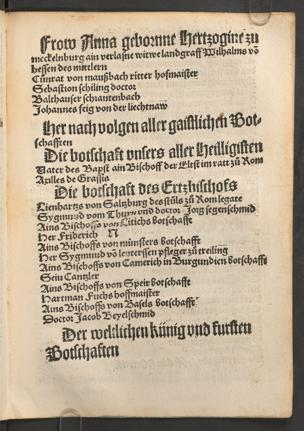 Frow Anna gebornne Hertzogine zu
meckelnburg ain verlasne witwe landgraff Wilhalms vō
hessen des mittlern
Cunrat von maußbach ritter hofmaister
Sebastion schiling doctor
Balthauser schrautenbach
Johannes feig von der liechtnaw
Her nach volgen aller gaistlichen Bot-
schafften
Die botschaft vnsers aller Heiligisten
Vater des Bapst ain Bischoff der Elst im ratt zů Rom
Axilles de Grassia
Die botschaft des Ertzbischofs
Lienhartzs von Saltzburg des stůls zů Rom legate
Sygmund vom Thurn vnd doctor Jorg segenschmid
Ains Bischoffs von Litichs botschafft
Her Friderich N
Ains Bischoffs von münsters botschafft
Her Sygmund vō pfleger zů
Ains Bischoffs von Camerich in Burgundien botschafft
Sein Cantzler
Ains Bischoffs von Speir botschafft
Hartman Fuchs hoffmaister
Ains Bischoffs von Basels botschafft
Doctor Jacob Beyelschmid
Der weltlichen künig vnd fursten
Botschaften